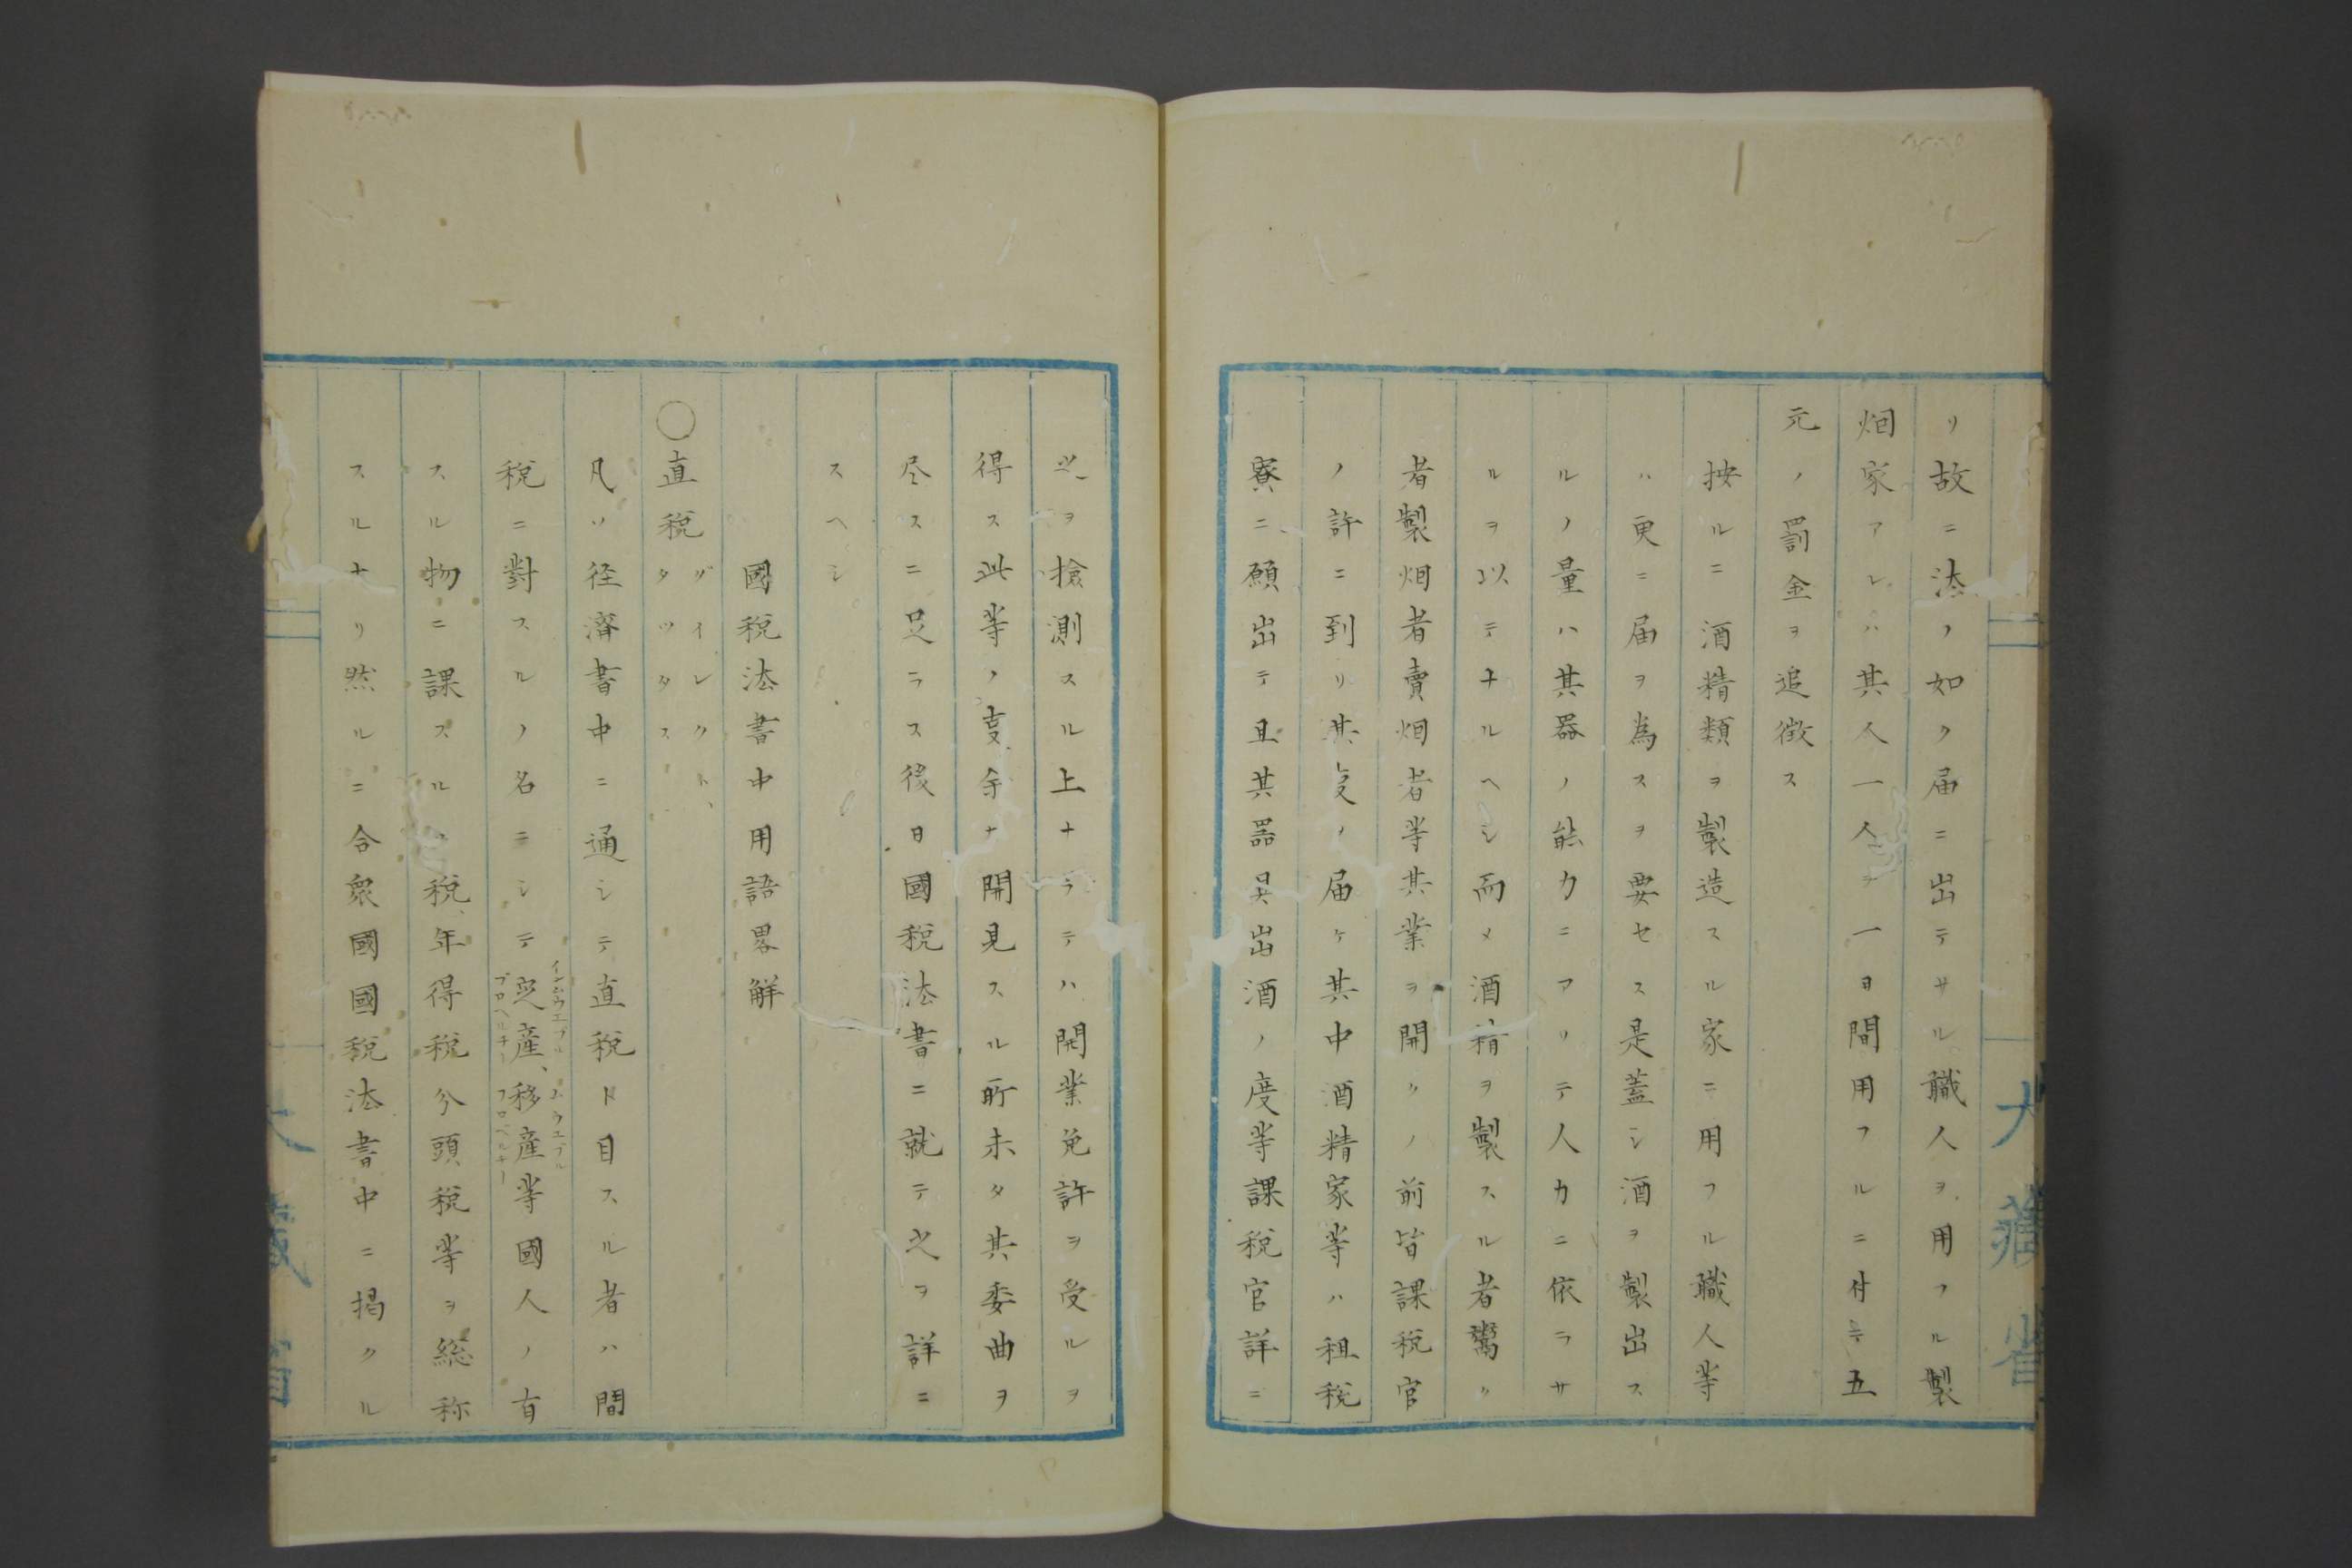 リ故ニ法ノ如ク届ニ出テサル職人ヲ用フル製
烟家アレハ其人一人ヲ一日間用フルニ付テ五
元ノ罰金ヲ追徴ス
按ルニ酒精類ヲ製造スル家ニ用フル職人等
ハ更ニ届ヲ為スヲ要セス是蓋シ酒ヲ製出ス
ルノ量ハ其器ノ能力ニアリテ人力ニ依ラサ
ルヲ以テナルヘシ而メ酒精ヲ製スル者鬻ク
者製烟者賣烟者等其業ヲ開クノ前皆課税官
ノ許ニ到リ其ノ届ケ其中酒精家等ハ租税
寮ニ願出テ且其器具出酒ノ度等課税官詳ニ
之ヲ撿測スル上ナラテハ開業免許ヲ受ルヲ
得ス此等ノ余ナ開見スル所未タ其委曲ヲ
尽スニ足ラス後日國税法書ニ就テ之ヲ詳ニ
スヘシ
國税法書中用語畧解
○直税 ダイレクト、タツクス
凡ソ径濟書中ニ通シテ直税ト目スル者ハ間
税ニ對スルノ名ニシテ定産、移産等國人ノ有
イムムウエブル プロペルチー ムウエブル プロペルチー
スル物ニ課スル税、年得税分頭税等ヲ総称
スルナリ然ルニ合衆國國税法書中ニ掲クル
大藏省
大藏省